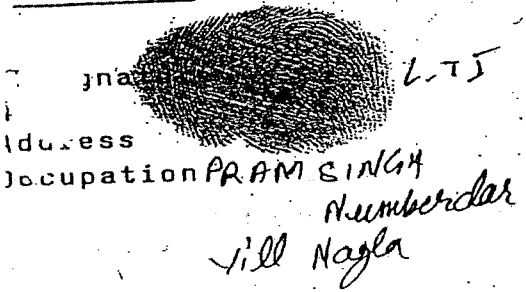 L.T.I
Occupation PRAM SINGH
Numberdar
Vill Nagla